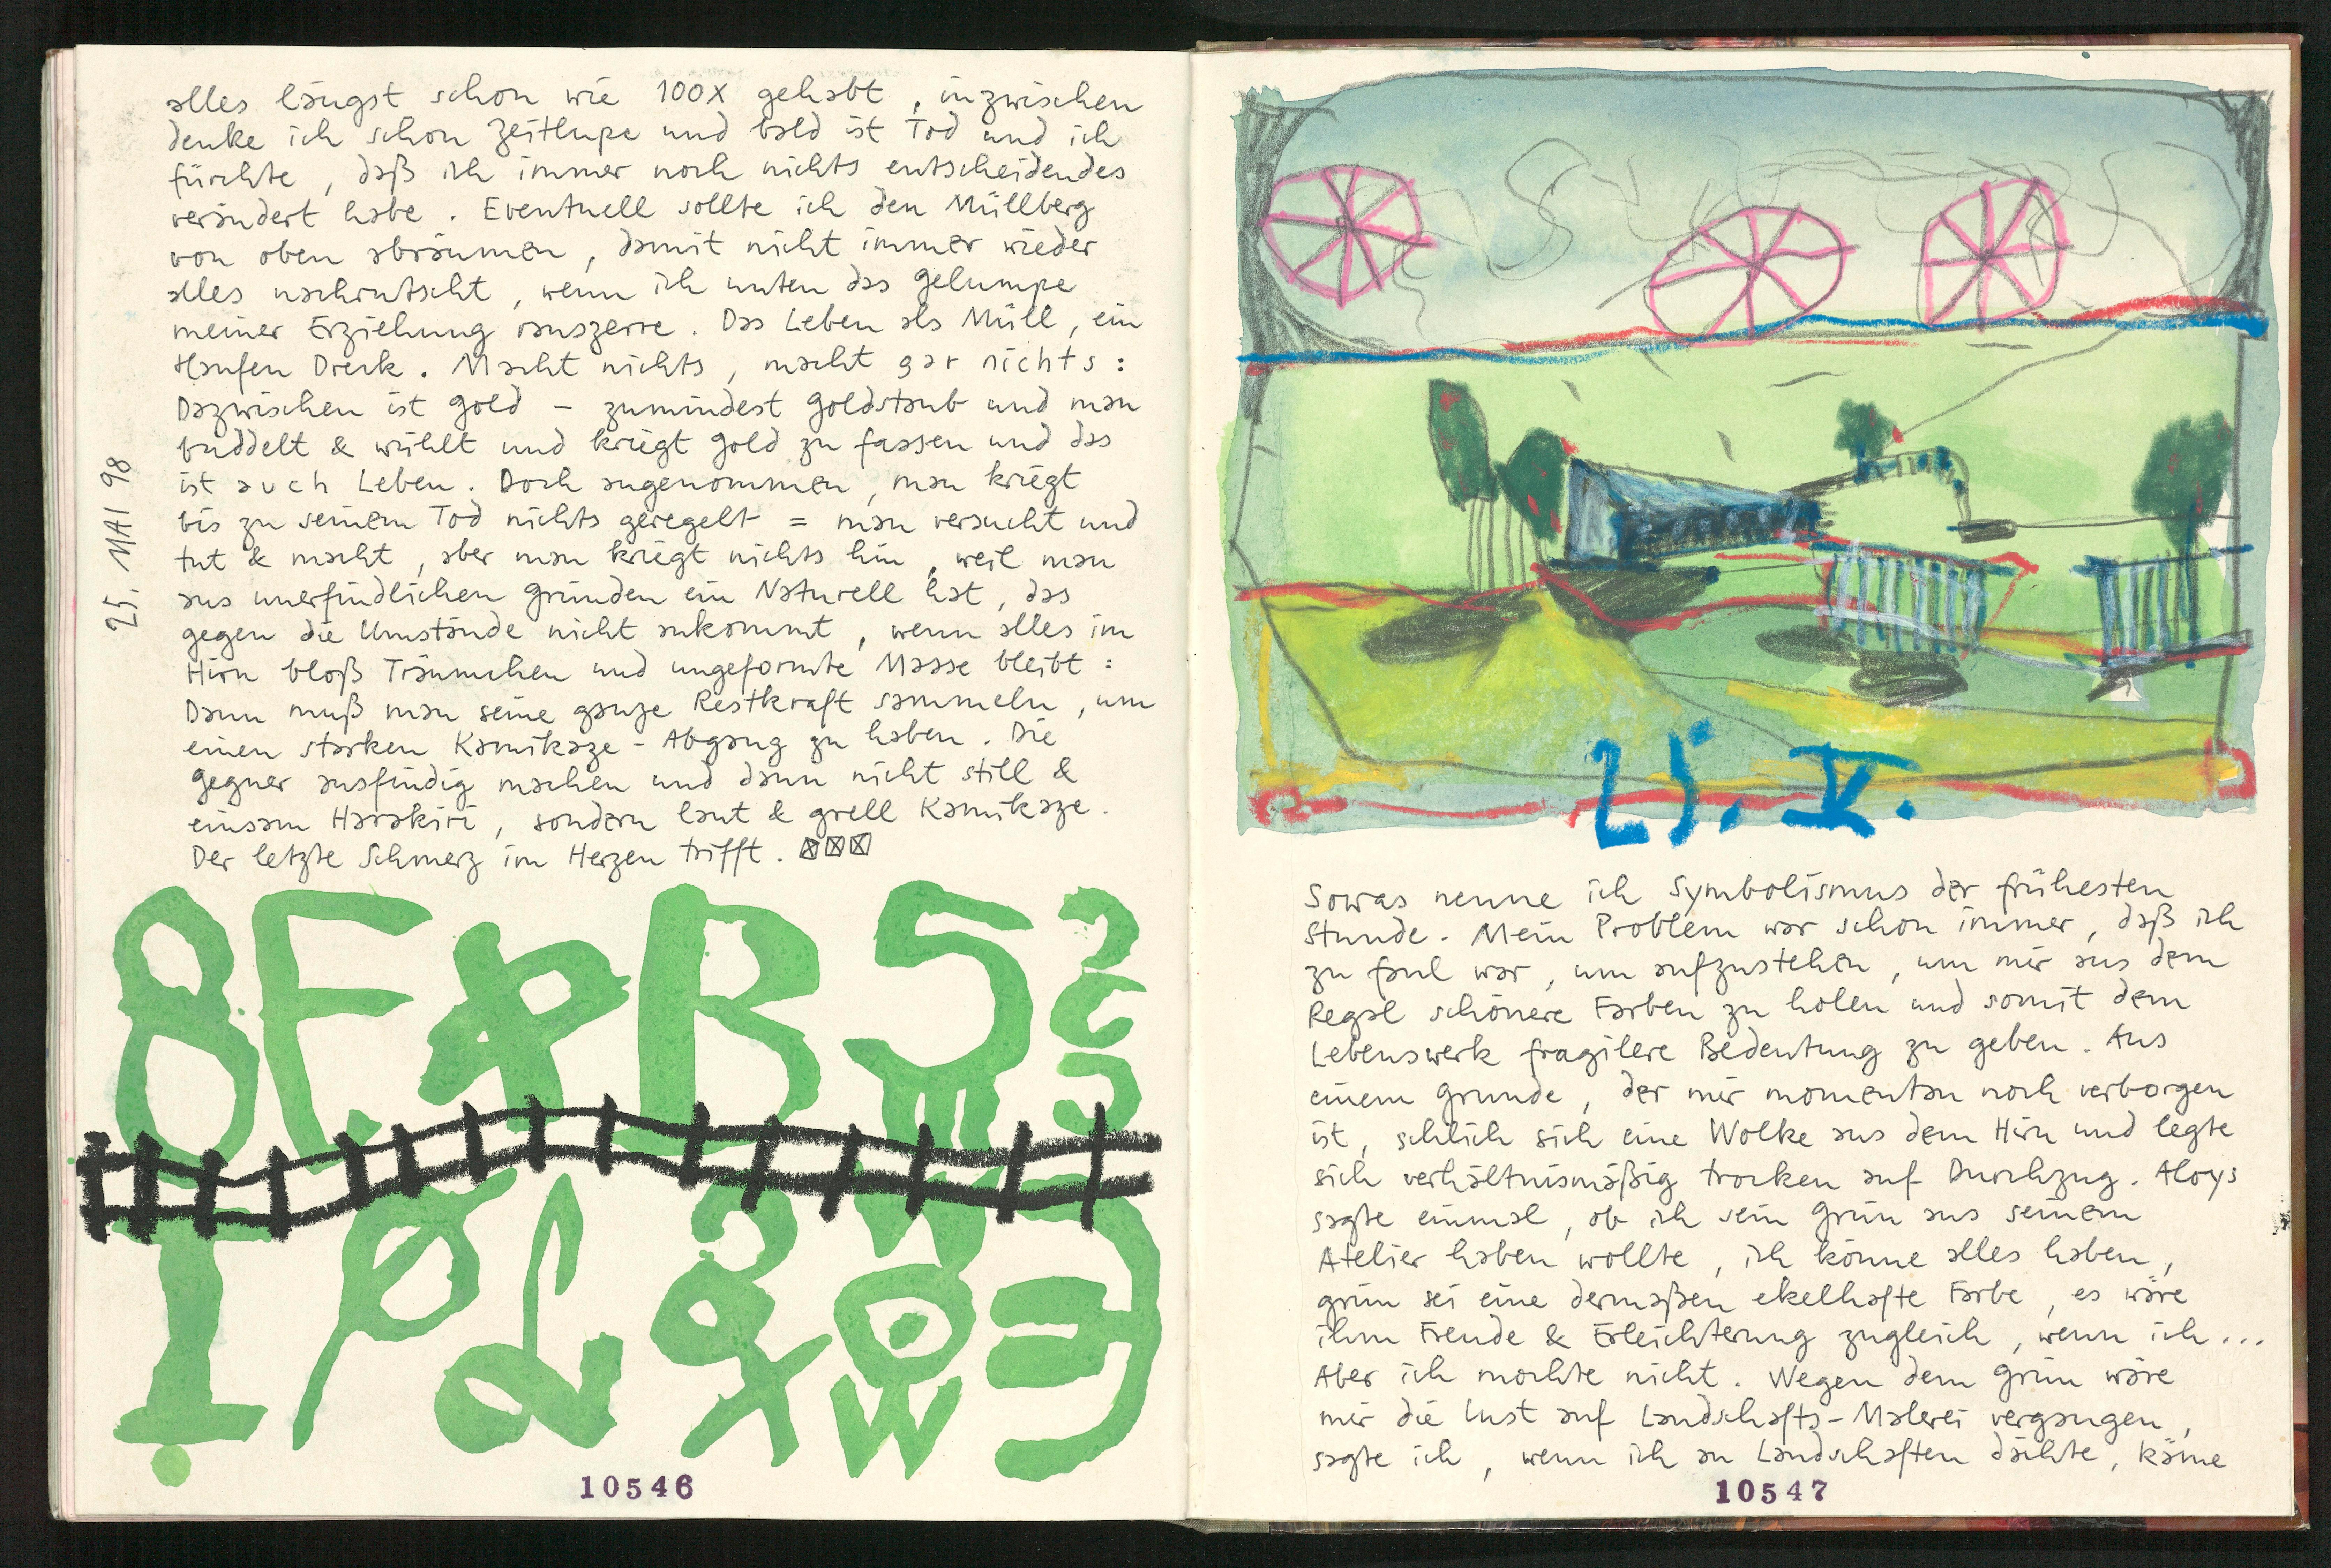 alles längst schon wie 100X gehabt, inzwischen
denke ich schon Zeitlupe und bald ist Tod und ich
fürchte, daß ich immer noch nichts entscheidendes
verändert habe. Eventuell sollte ich den Müllberg
von oben abräumen, damit nicht immer wieder
alles nachrutscht, wenn ich unten das Gelumpe
meiner Erziehung rauszerre. Das Leben als Müll, ein
Haufen Dreck. Macht nichts, macht gar nichts:
Dazwischen ist Gold – zumindest Goldstaub und man
buddelt & wühlt und kriegt Gold zu fassen und das
ist auch Leben. Doch angenommen, man kriegt
bis zu seinem Tod nichts geregelt = man versucht und
tut & macht, aber man kriegt nichts hin, weil man
aus unerfindlichen Gründen ein Naturell hat, das
gegen die Umstände nicht ankommt, wenn alles im
Hirn bloß Träumchen und ungeformte Masse bleibt:
Dann muß man seine ganze Restkraft sammeln, um
einen starken Kamikaze-Abgang zu haben. Die
Gegner ausfindig machen und dann nicht still &
einsam Harakiri, sondern laut & grell Kamikaze.
Der letzte Schmerz im Herzen trifft.
25. MAI 98
10546
25. V.
Sowas nenne ich Symbolismus der frühesten
Stunde. Mein Problem war schon immer, daß ich
zu faul war, um aufzustehen, um mir aus dem
Regal schönere Farben zu holen und somit dem
Lebenswerk fragilere Bedeutung zu geben. Aus
einem Grunde, der mir momentan noch verborgen
ist, schlich sich eine Wolke aus dem Hirn und legte
sich verhältnismäßig trocken auf Durchzug. Aloys
sagte einmal, ob ich sein Grün aus seinem
Atelier haben wollte, ich könne alles haben,
grün sei eine dermaßen ekelhafte Farbe, es wäre
ihm Freude & Erleichterung zugleich, wenn ich...
Aber ich mochte nicht. Wegen dem Grün wäre
mir die Lust auf Landschafts-Malerei vergangen,
sagte ich, wenn ich an Landschaften dächte, käme
10547